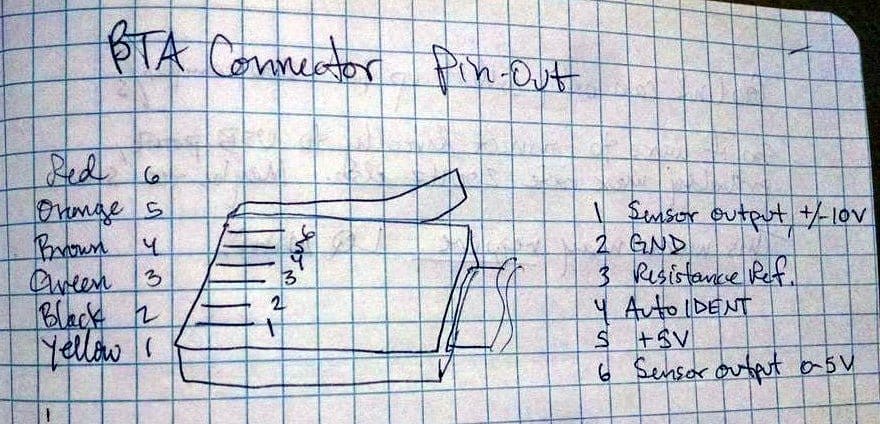 BTA Connector Pin-Out
Red 6
Orange 5
Brown 4
Green 3
Black 2
Yellow 1
6
5
4
3
2
1
1 Sensor output, +/-10V
2 GND
3 Resistance Ref.
4 Auto IDENT
5 +5V
6 Sensor output 0-5V